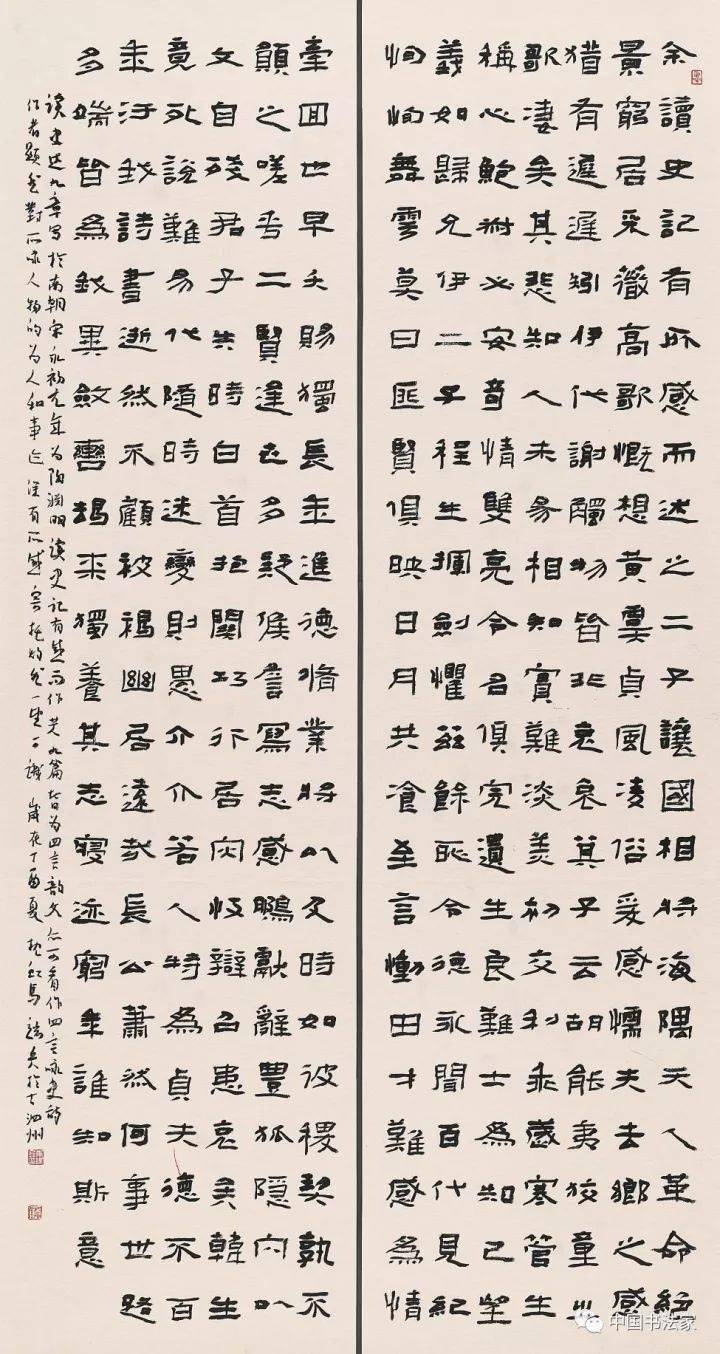 余讀史記有所感而述之二子讓國相將海隅天人革命絕
景窮居采薇高歌慨想黃虞貞風淩俗爰感懦夫去鄉之感
猶有遲遲矧伊代謝觸物皆非哀哀箕子云胡能夷狡童之
歌淒矣其悲知人未易相知實難淡美初交利乖歲寒管生
稱心鮑叔必安奇情雙亮令名俱完遺生良難士為知己望
義如歸允伊二子程生揮劍懼茲餘恥令德永聞百代見紀
恂恂舞雩莫曰匪賢俱映日月共飡至言慟由才難感為情
牽回也早夭賜獨長年進德脩業將以及時如彼稷契孰不
願之嗟乎二賢逢世多疑候詹寫志感鵩獻辭豐狐隱穴以
文自殘君子失時白首抱關巧行居災忮辯召患哀矣韓生
竟死說難易代隨時迷變則愚介介若人特為貞夫德不百
年汙我詩書逝然不顧被褐幽居遠哉長公蕭然何事世路
多端皆為我異斂轡朅來獨養其志寢迹窮年誰知斯意
读史述九章写於南朝宋永初元年为陶渊明读史记有感而作共九篇皆为四言韵文亦可看作四言咏史诗
作者对所咏人物的为人和事迹深有所感寄托岁在丁酉夏於古泗州
中国书法家